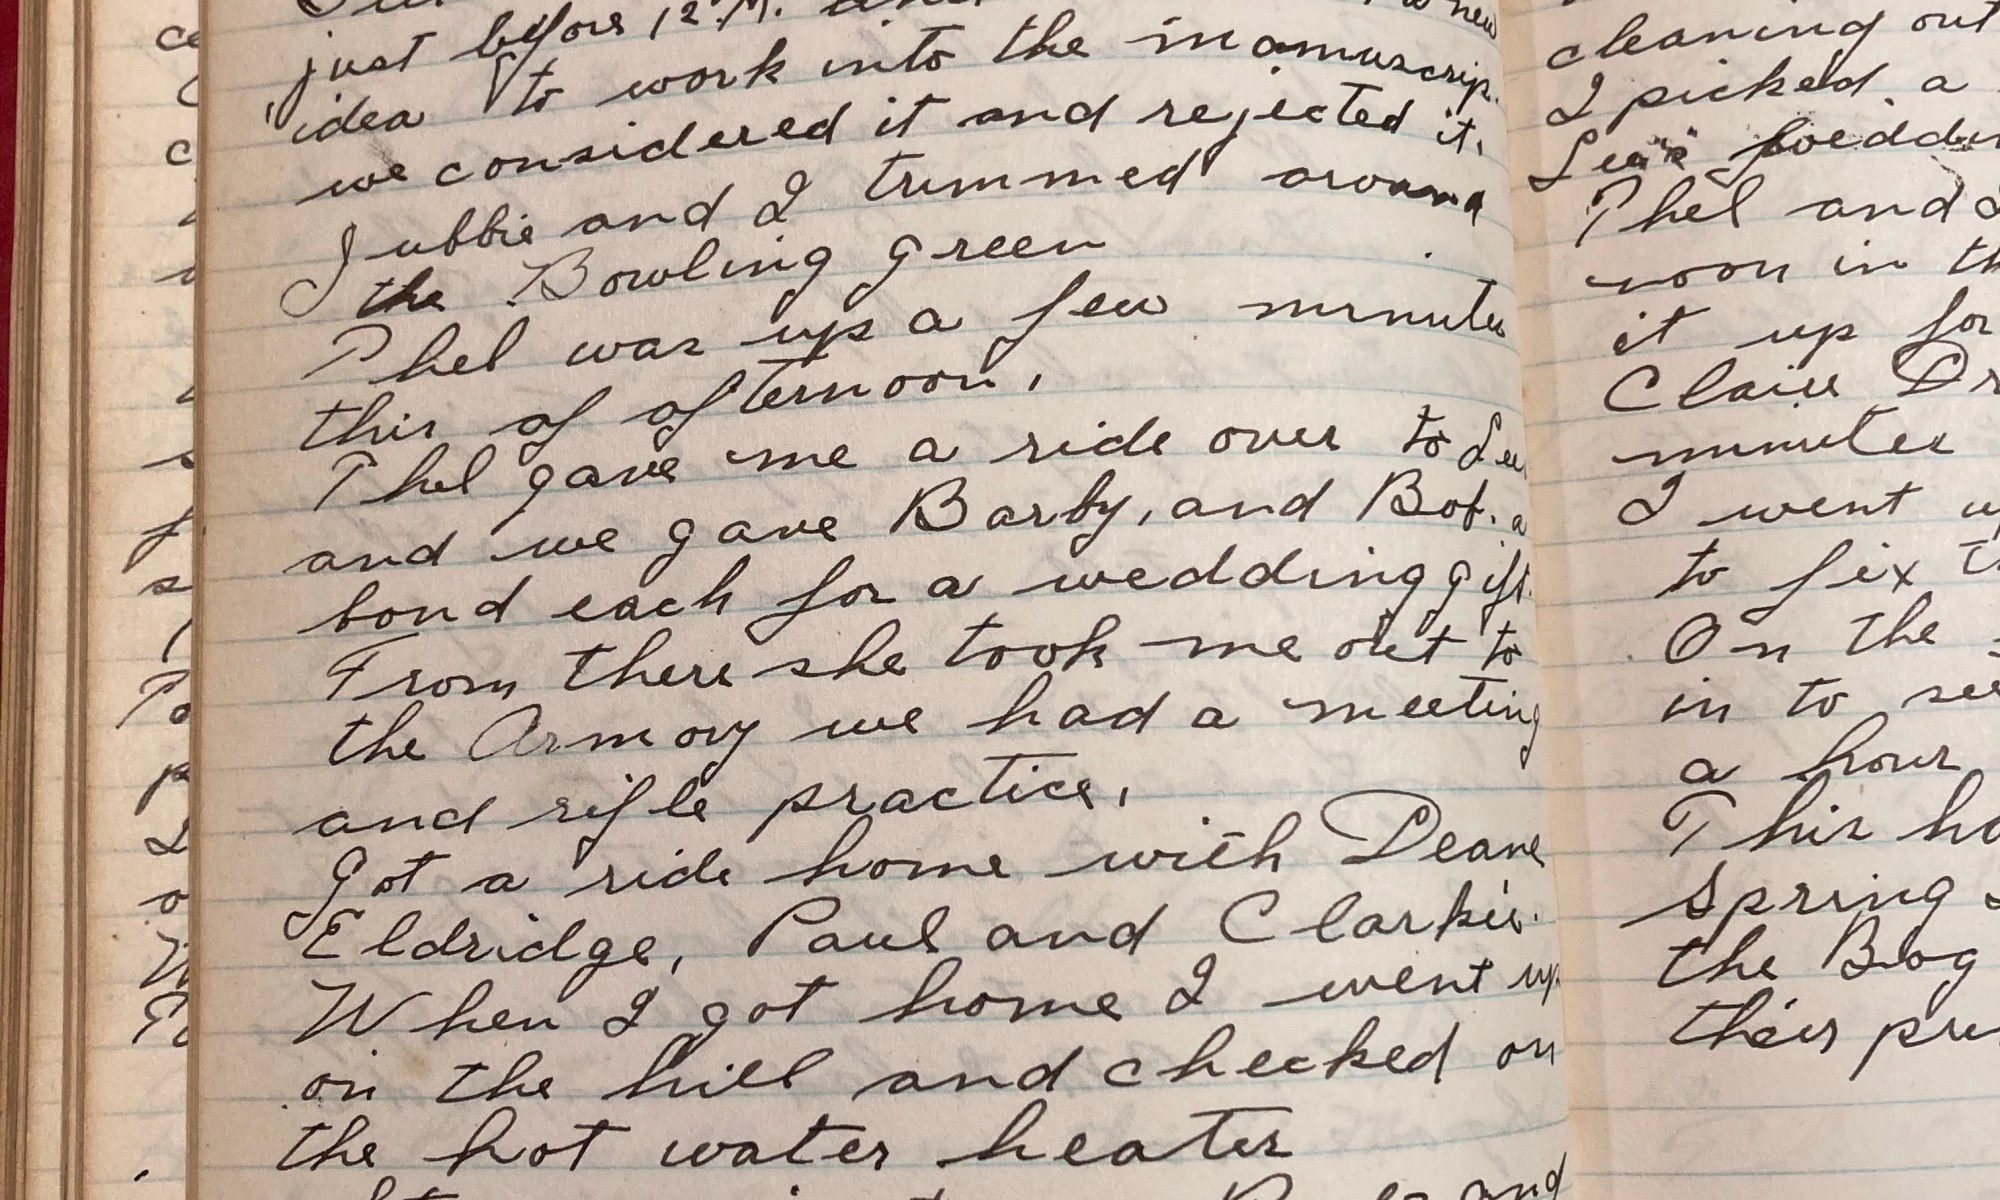 just before 12 M. new
idea to work into the manuscrip.
we considered it and rejected it.
Jubbie and I trimmed around
the Bowling Green
Phel was up a few minutes
this of afternoon.
Phel gave me a ride over to Lee
and we gave Barby, and Bob. a
bond each for a wedding gift.
From there she took me out to
the Armory we had a meeting
and rifle practice.
Got a ride home with Deane
Eldridge, Paul and Clarkie.
When I got home I went up
on the hill and checked on
the hot water heater
and
cleaning out
I picked a
Phel and
noon in th
it up for
Claire Dr
minutes
I went up
to fix t
On the s
in to see
a hour
This ho
Spring
the Bog
their pre